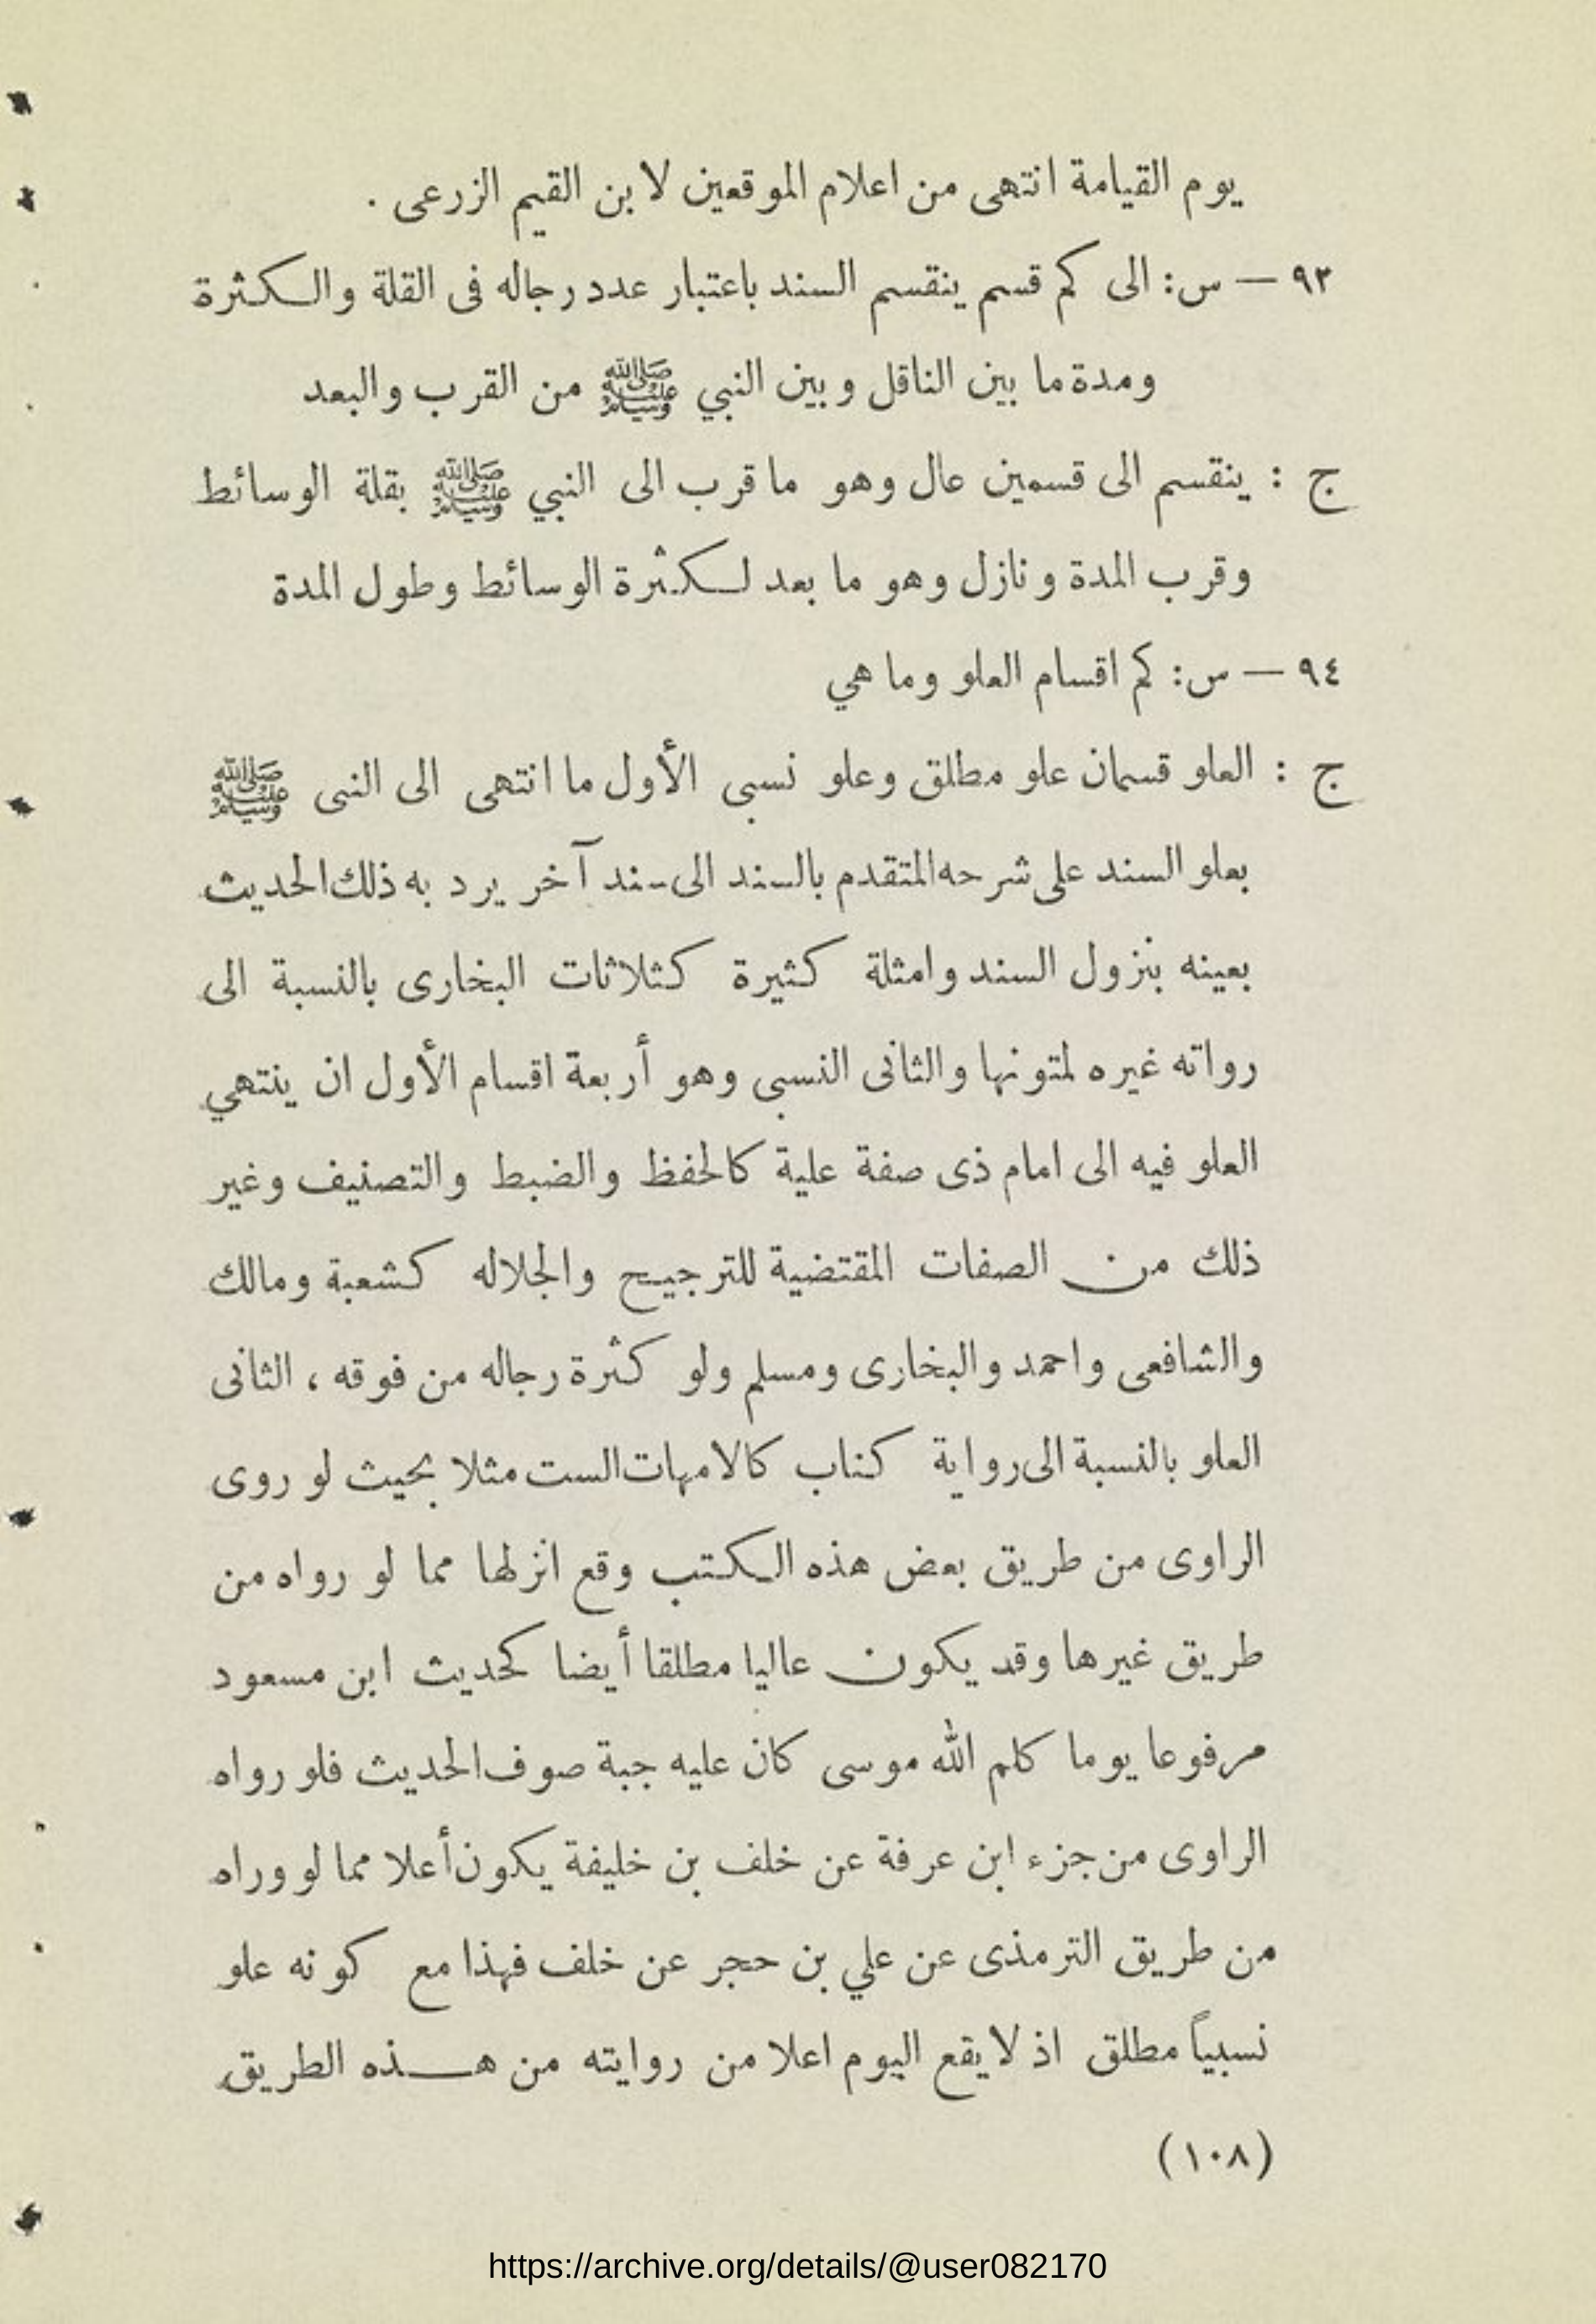 يوم القيامة انتهى من اعلام الموقعين لابن القيم الزرعى .
٩٣ — س: الى كم قسم ينقسم السند باعتبار عدد رجاله فى القلة والكثرة
ومدة ما بين الناقل وبين النبي ﷺ من القرب والبعد
ج : ينقسم الى قسمين عال وهو ما قرب الى النبي ﷺ بقلة الوسائط
وقرب المدة ونازل وهو ما بعد لكثرة الوسائط وطول المدة
٩٤ — س: كم اقسام العلو وما هي
ج : العلو قسمان علو مطلق وعلو نسبى الأول ما انتهى الى النبى ﷺ
بعلو السند على شرحه المتقدم بالسند الى سند آخر يرد به ذلك الحديث
بعينه بنزول السند وامثلة كثيرة كثلاثات البخارى بالنسبة الى
رواته غيره لمتونها والثانى النسبى وهو أربعة اقسام الأول ان ينتهي
العلو فيه الى امام ذى صفة علية كالحفظ والضبط والتصنيف وغير
ذلك من الصفات المقتضية للترجيح والجلاله كشعبة ومالك
والشافعى واحمد والبخارى ومسلم ولو كثرة رجاله من فوقه ، الثانى
العلو بالنسبة الى رواية كتاب كالامهات الست مثلا بحيث لو روى
الراوى من طريق بعض هذه الكتب وقع انزلها مما لو رواه من
طريق غيرها وقد يكون عاليا مطلقا أيضا كحديث ابن مسعود
مرفوعا يوما كلم الله موسى كان عليه جبة صوف الحديث فلو رواه
الراوى من جزء ابن عرفة عن خلف بن خليفة يكون أعلا مما لو وراه
من طريق الترمذى عن علي بن حجر عن خلف فهذا مع كونه علو
نسبياً مطلق اذ لا يقع اليوم اعلا من روايته من هذه الطريق
(١٠٨)
https://archive.org/details/@user082170